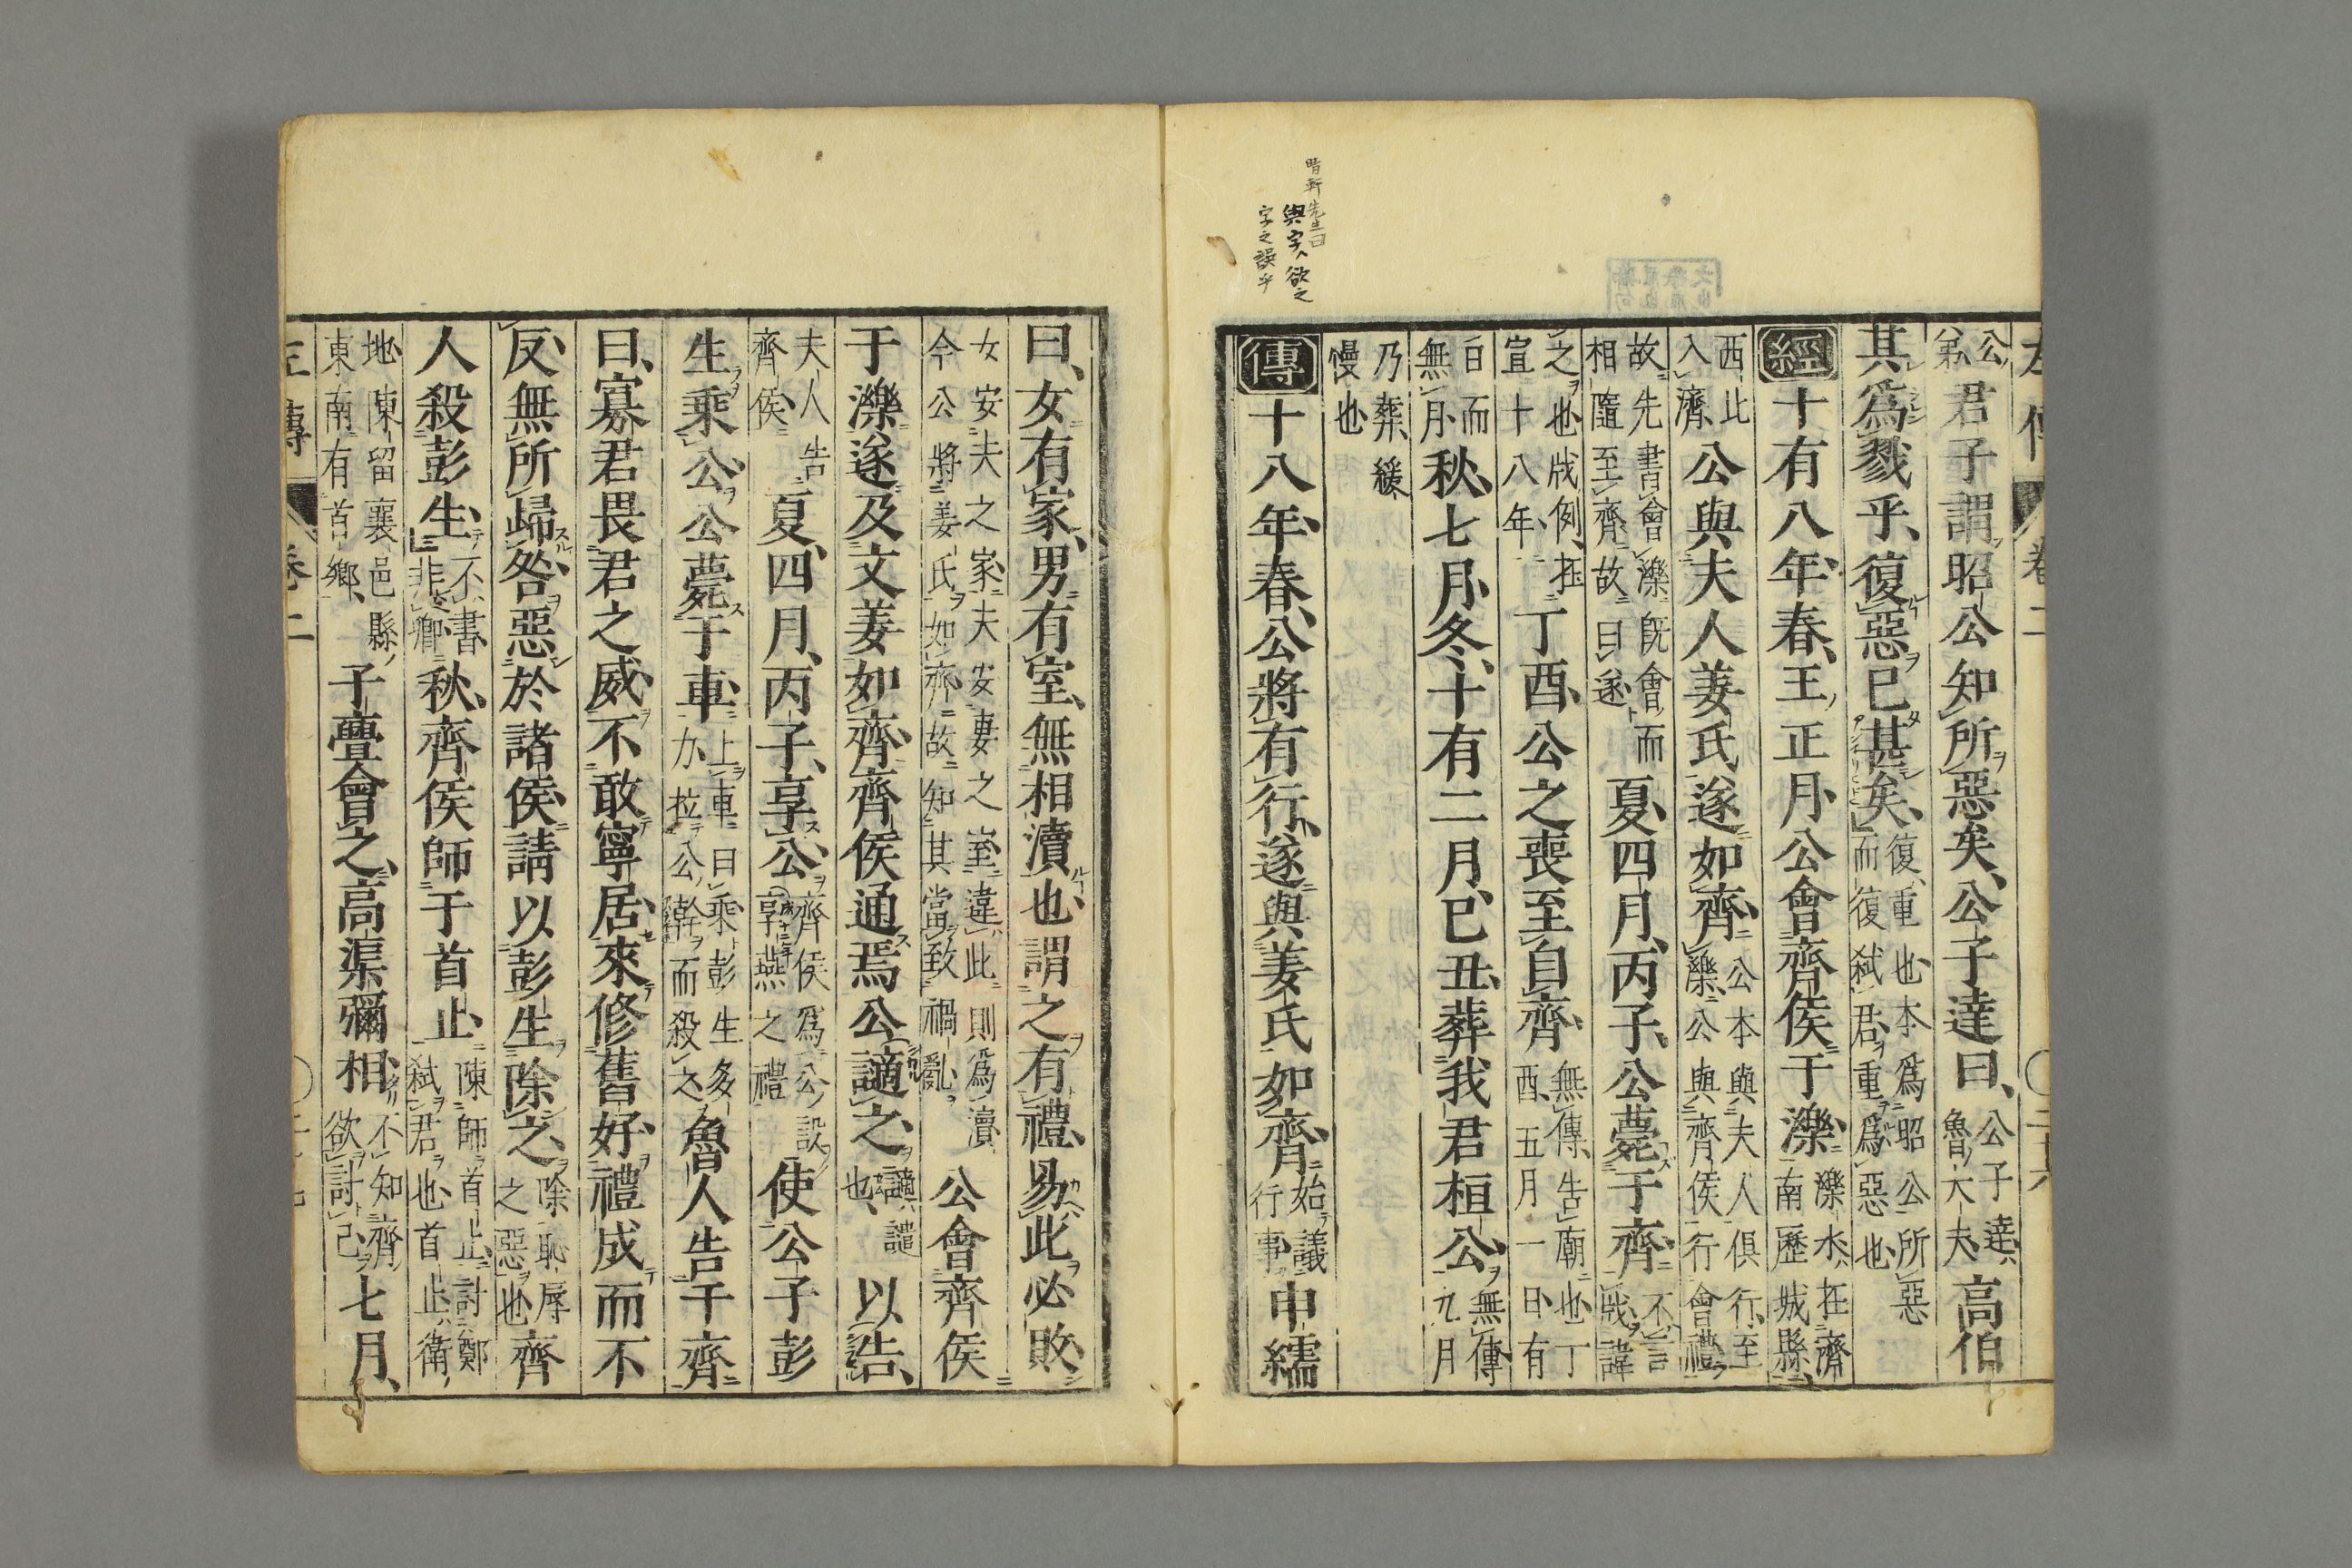 暗軒先生曰
與字ハ欲之
字之誤乎
左傳 卷二
公弟君子謂昭公知所惡矣公子達曰公子達魯大夫高伯
其爲戮乎復惡已甚矣復重也本爲昭公所惡而復弑君重爲惡也
經十有八年春王正月公會齊侯于濼濼水在濟南歷城縣
西北入濟公與夫人姜氏遂如齊公本與夫人俱行至濼公與齊侯行會禮
故先書會濼既會而相隨至齊故曰遂夏四月丙子公薨于齊不言戕諱
之也戕例在宣十八年丁酉公之喪至自齊無傳告廟也丁酉五月一日有
日而無月秋七月冬十有二月己丑葬我君桓公無傳九月
乃葬緩慢也
傳十八年春公將有行遂與姜氏如齊始議行事申繻
曰女有家男有室無相瀆也謂之有禮易此必敗
女安夫之家夫安妻之室違此則爲瀆今公將姜氏如齊故知其當致禍亂公會齊侯
于濼遂及文姜如齊齊侯通焉公謫之謫譴也以告
夫人告齊侯夏四月丙子享公齊侯爲公設享燕之禮使公子彭
生乘公公薨于車上車曰乘彭生多力拉公幹而殺之魯人告于齊
曰寡君畏君之威不敢寧居來修舊好禮成而不
反無所歸咎惡於諸侯請以彭生除之除恥辱之惡也齊
人殺彭生不書非卿秋齊侯師于首止陳師首止討鄭弑君也首止衛
地陳留襄邑縣東南有首鄉子亹會之高渠彌相不知齊欲討己七月
左傳 卷二